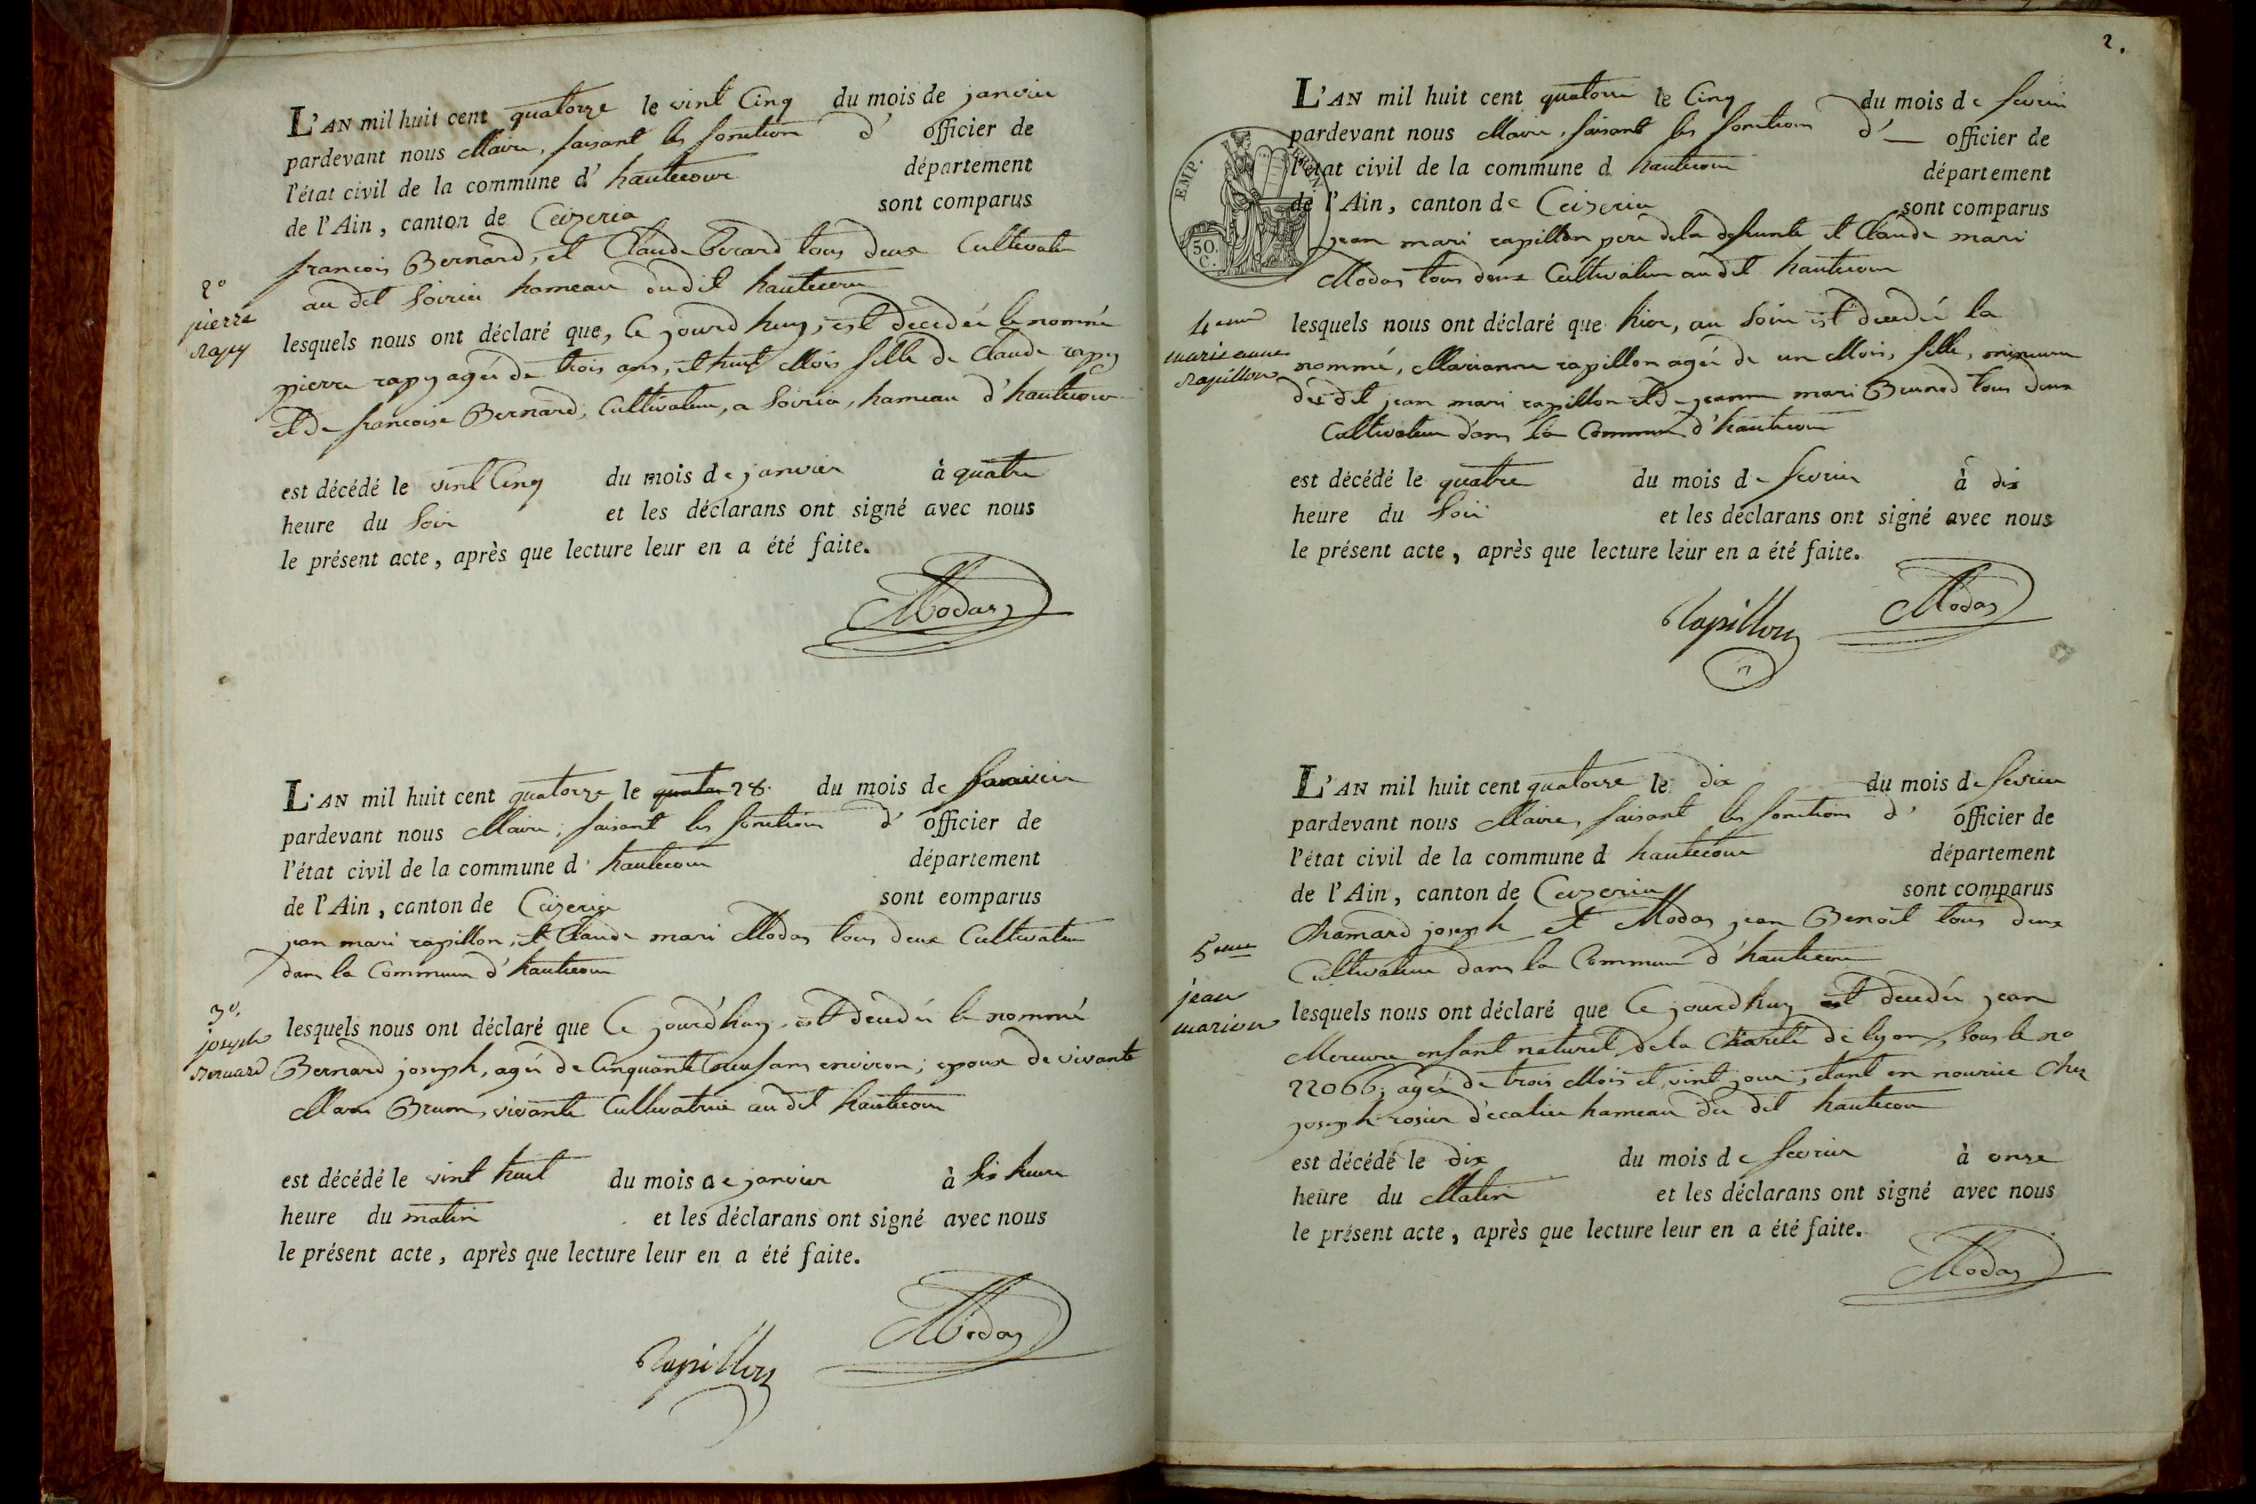 L'AN mil huit cent quatorze le vint Cinq du mois de janvier
pardevant nous Maire, faisant les fonction d' officier de
l'état civil de la commune d' hautecour département
de l'Ain, canton de Ceizeria sont comparus
francois Bernard, et Claude tous deux Cultivateur
au dit Soiria hameau dudit hautecour
2º
pierre
rapy
lesquels nous ont déclaré que, Ce jourd huy, est decedée le nommé
pierre rapy agée de trois ans, et huit Mois fille de Claude rapy
et de francoise Bernard, Cultivateur, a Soiria, hameau d'hautecour
est décédé le vint Cinq du mois de janvier à quatre
heure du Soir et les déclarans ont signé avec nous
le présent acte, après que lecture leur en a été faite.
Modas
L'AN mil huit cent quatorze le quatre 28. du mois de Janvier
pardevant nous Maire, faisant les fonction d' officier de
l'état civil de la commune d' hautecour département
de l'Ain, canton de Ceizeria sont comparus
jean mari rapillon, et Claude mari Modas tous deux Cultivateur
dans la Commune d'hautecour
3º.
joseph
Bernard
lesquels nous ont déclaré que Ce jourd'huy, est decedée le nommé
Bernard joseph, agée de Cinquante neuf ans environ, epoux de vivante
Marie Brun, vivante Cultivatrice au dit hautecour
est décédé le vint huit du mois de janvier à six heure
heure du matin et les déclarans ont signé avec nous
le présent acte, après que lecture leur en a été faite.
Modas
Rapillon
2.
L'AN mil huit cent quatorze le Cinq du mois de fevrier
pardevant nous Maire, faisant les fonctions d' officier de
l'état civil de la commune d hautecour département
de l'Ain, canton de Ceizeria sont comparus
EMP.
50.
C.
jean mari rapillon pere de la defunte et Claude mari
Modas tous deux Cultivateur au dit hautecour
4eme
marie anne
Rapillon
lesquels nous ont déclaré que hier, au Soir est decedée la
nommé, Marianne rapillon agée de un Mois, fille, mineure
du dit jean mari rapillon et de jeanne mari Brunod tous deux
Cultivateur dans la Commune d'hautecour
est décédé le quatre du mois de fevrier à dix
heure du Soir et les déclarans ont signé avec nous
le présent acte, après que lecture leur en a été faite.
Rapillon Modas
L'AN mil huit cent quatorze le dix du mois de fevrier
pardevant nous Maire, faisant les fonctions d' officier de
l'état civil de la commune d hautecour département
de l'Ain, canton de Ceizeria sont comparus
Chanard joseph et Modas jean Benoit tous deux
Cultivateur dans la Commune d'hautecour
5eme
jean
lesquels nous ont déclaré que Ce jourd huy est decedée jean
enfant naturel, de la Charité de lyon, sous le no
22066, agée de trois Mois et vint jour, étant en nourice Chez
joseph rosier hameau du dit hautecour
est décédé le dix du mois de fevrier à onze
heure du Matin et les déclarans ont signé avec nous
le présent acte, après que lecture leur en a été faite.
Modas